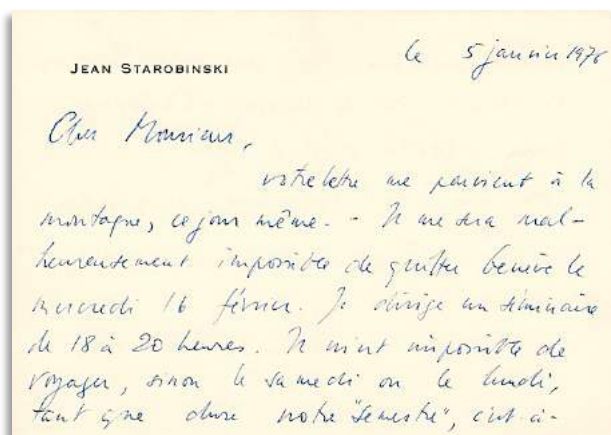 le 5 janvier 1976
JEAN STAROBINSKI
Cher Monsieur,
votre lettre me parvient à la
montagne, ce jour même. - Il me sera mal-
heureusement impossible de quitter Genève le
mercredi 16 février. Je dirige un séminaire
de 18 à 20 heures. Il m'est impossible de
voyager, sinon le samedi ou le lundi,
tant que dure notre "semestre", c'est-à-